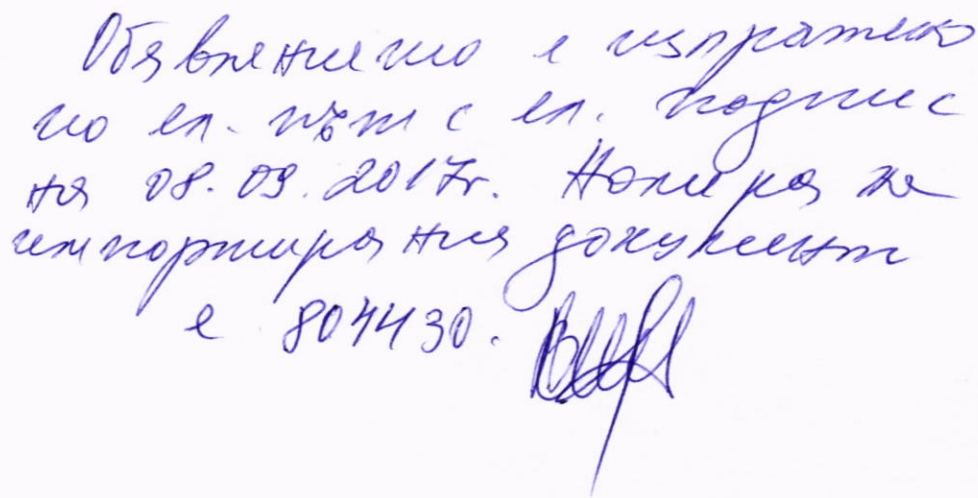 Обявлението е изпратено
по ел. път с ел. подпис
на 08.09.2017г. Номера на
импортирания документ
е 804430.